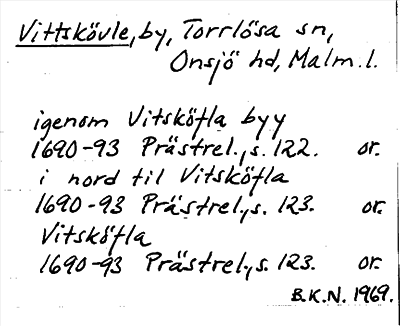 Vittskövle, by, Torrlösa sn,
Onsjö hd, Malm. l.
igenom Vitsköfla byy
1690-93 Prästrel., s. 122. or.
i nord til Vitsköfla
1690-93 Prästrel., s. 123. or.
Vitsköfla
1690-93 Prästrel., s. 123. or.
B.K.N. 1969.